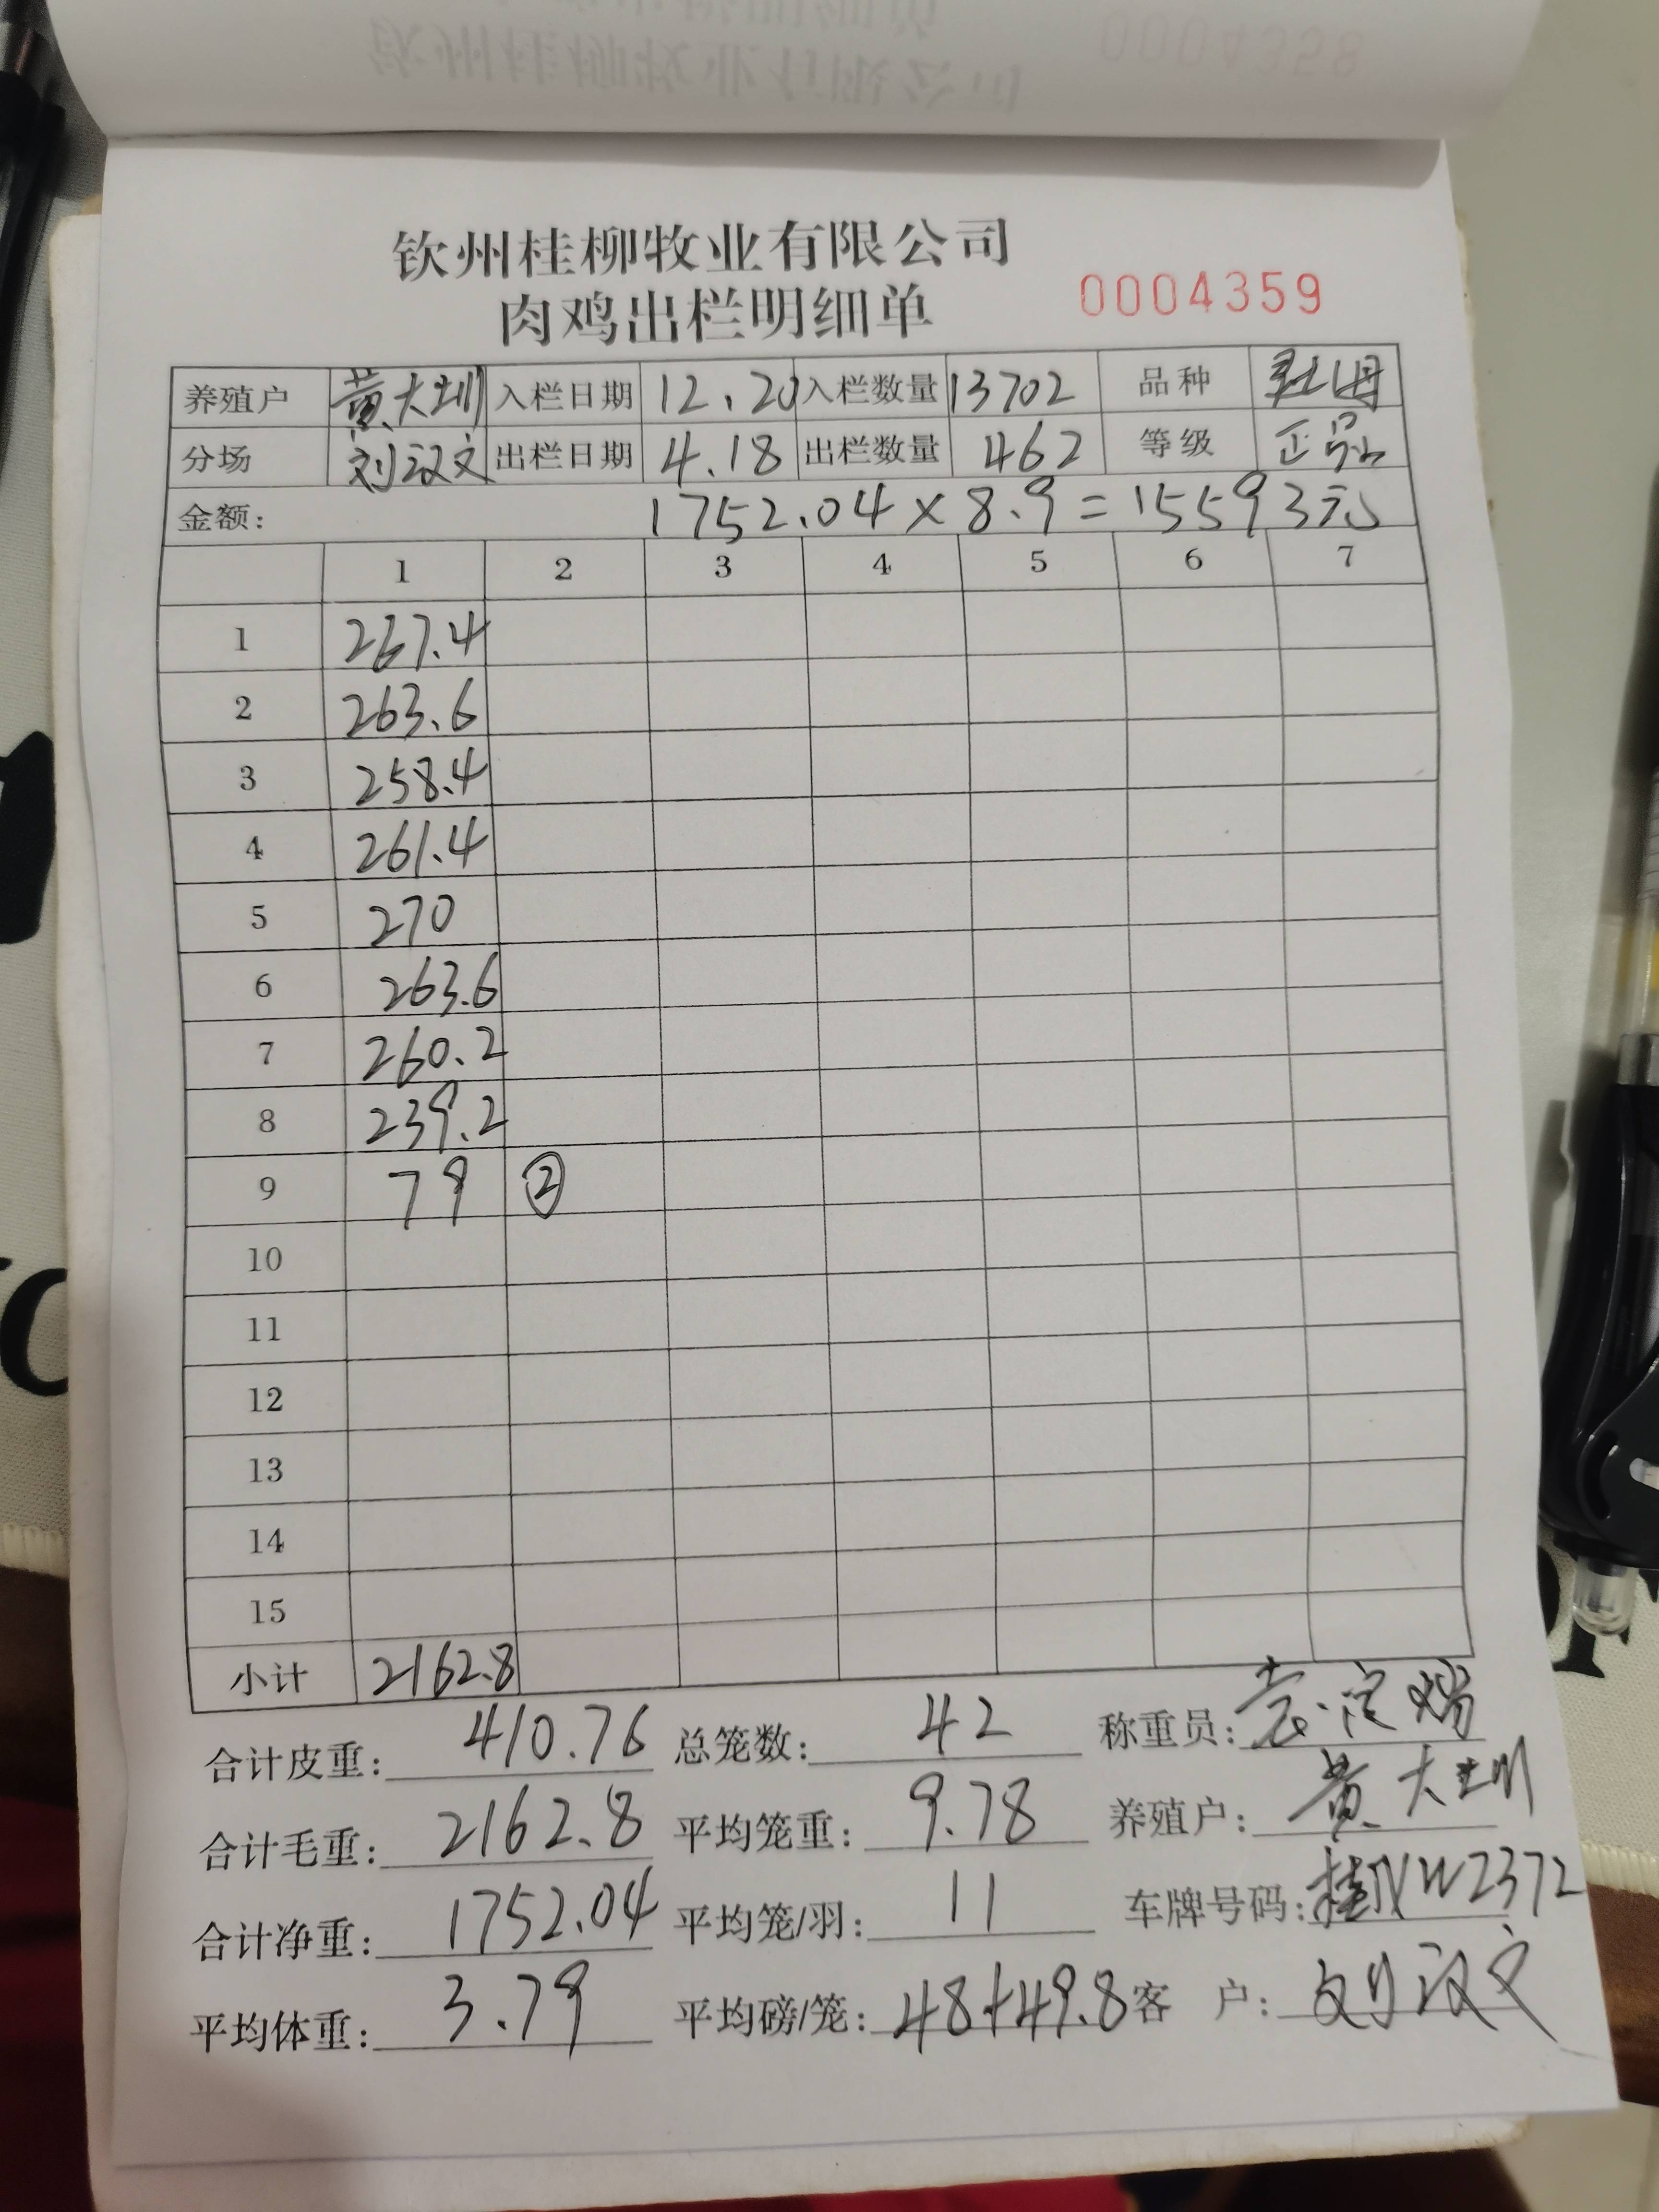 钦州桂柳牧业有限公司
肉鸡出栏明细单 0004359
养殖户 黄大圳 入栏日期 12.20 入栏数量 13702 品种
分场 刘汉文 出栏日期 4.18 出栏数量 462 等级 正品
金额: 1752.04×8.9=15593元
1 2 3 4 5 6 7
1 267.4
2 263.6
3 258.4
4 261.4
5 270
6 263.6
7 260.2
8 239.2
9 79 ②
10
11
12
13
14
15
小计 2162.8
合计皮重: 410.76 总笼数: 42 称重员:
合计毛重: 2162.8 平均笼重: 9.78 养殖户: 黄大圳
合计净重: 1752.04 平均笼/羽: 11 车牌号码:
平均体重: 3.79 平均磅/笼: 48+49.8 客 户: 刘汉文